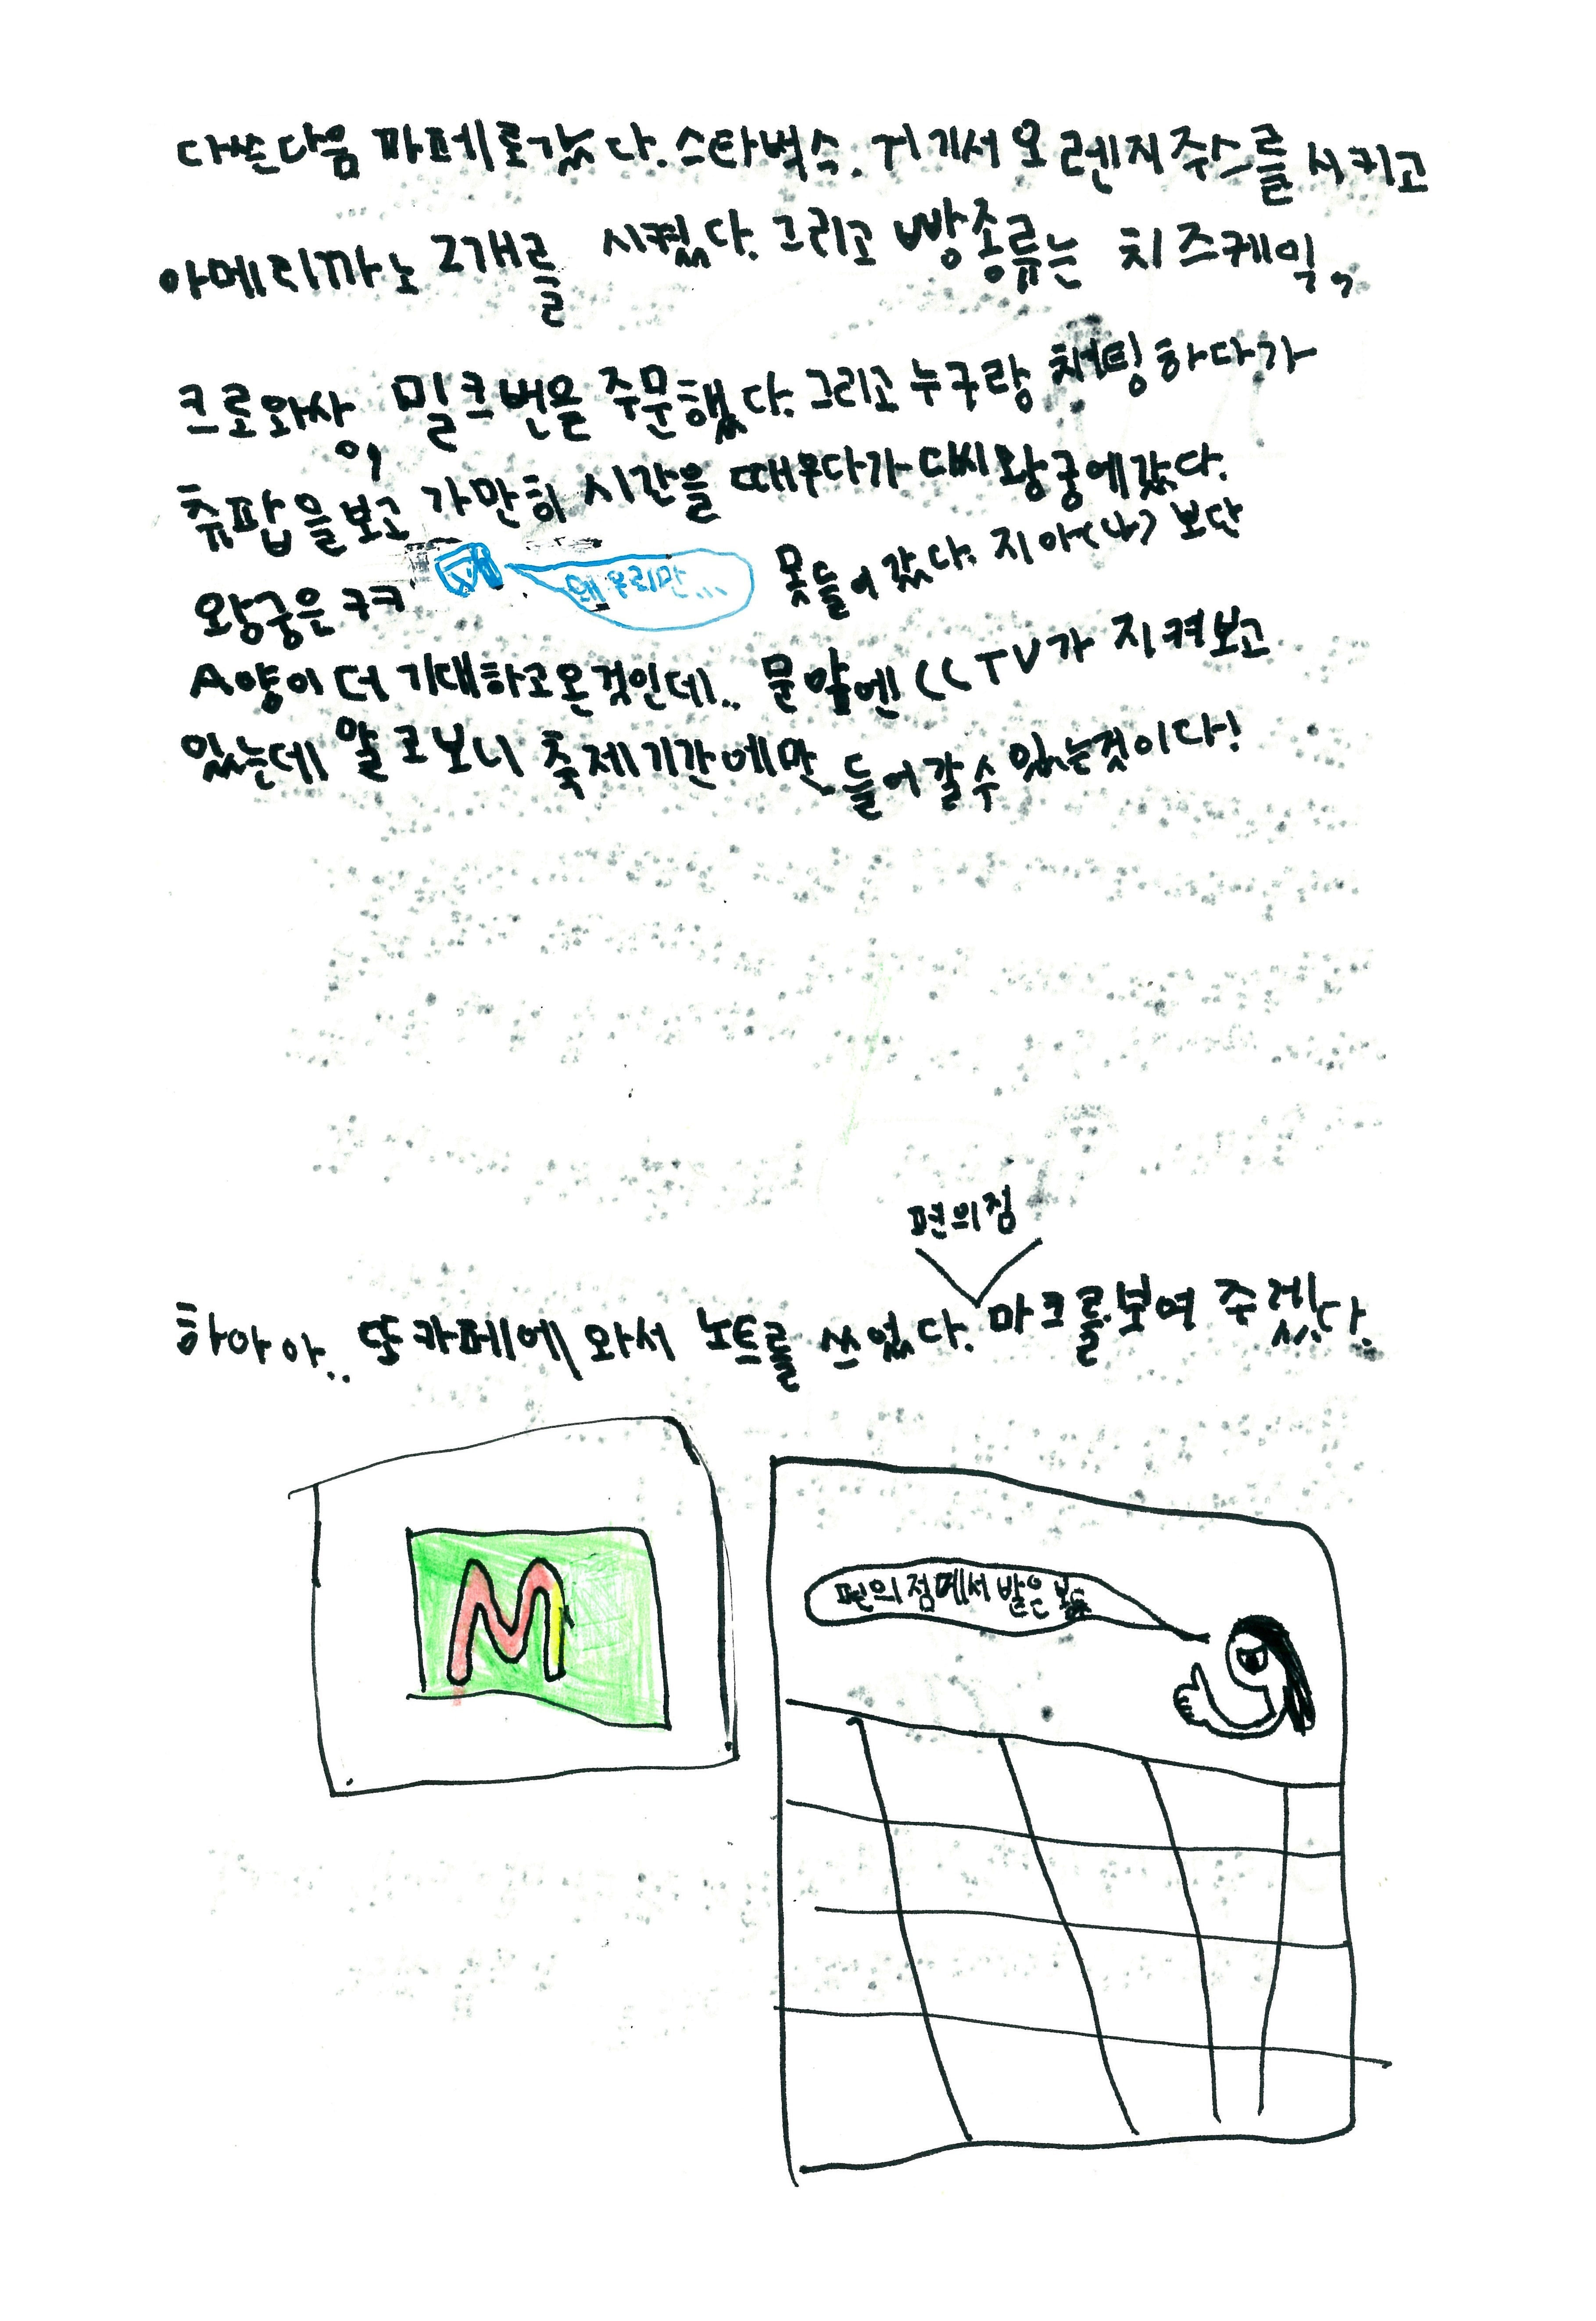 다쓴다음 까페로갔다. 스타벅스. 거기서 오렌지 주스를 시키고
아메리까노 2개를 시켰다. 그리고 빵종류는 치즈케잌,
크로와상, 밀크번을 주문했다. 그리고 누구랑 채팅하다가
츄팝을보고 가만히 시간을 때우다가 다씨왕궁에갔다.
왕궁은ㅋㅋ 왜 우리만... 못들어갔다. 지아(나) 보단
A양이 더 기대하고온것인데.. 문앞엔 CCTV가 지켜보고
있는데 알고보니 축제기간에만 들어갈수 있는것이다!
편의점
하아아.. 또 카페에 와서 노트를 쓰었다. 마크를보여 주겠다.
M
편의점에서 받은